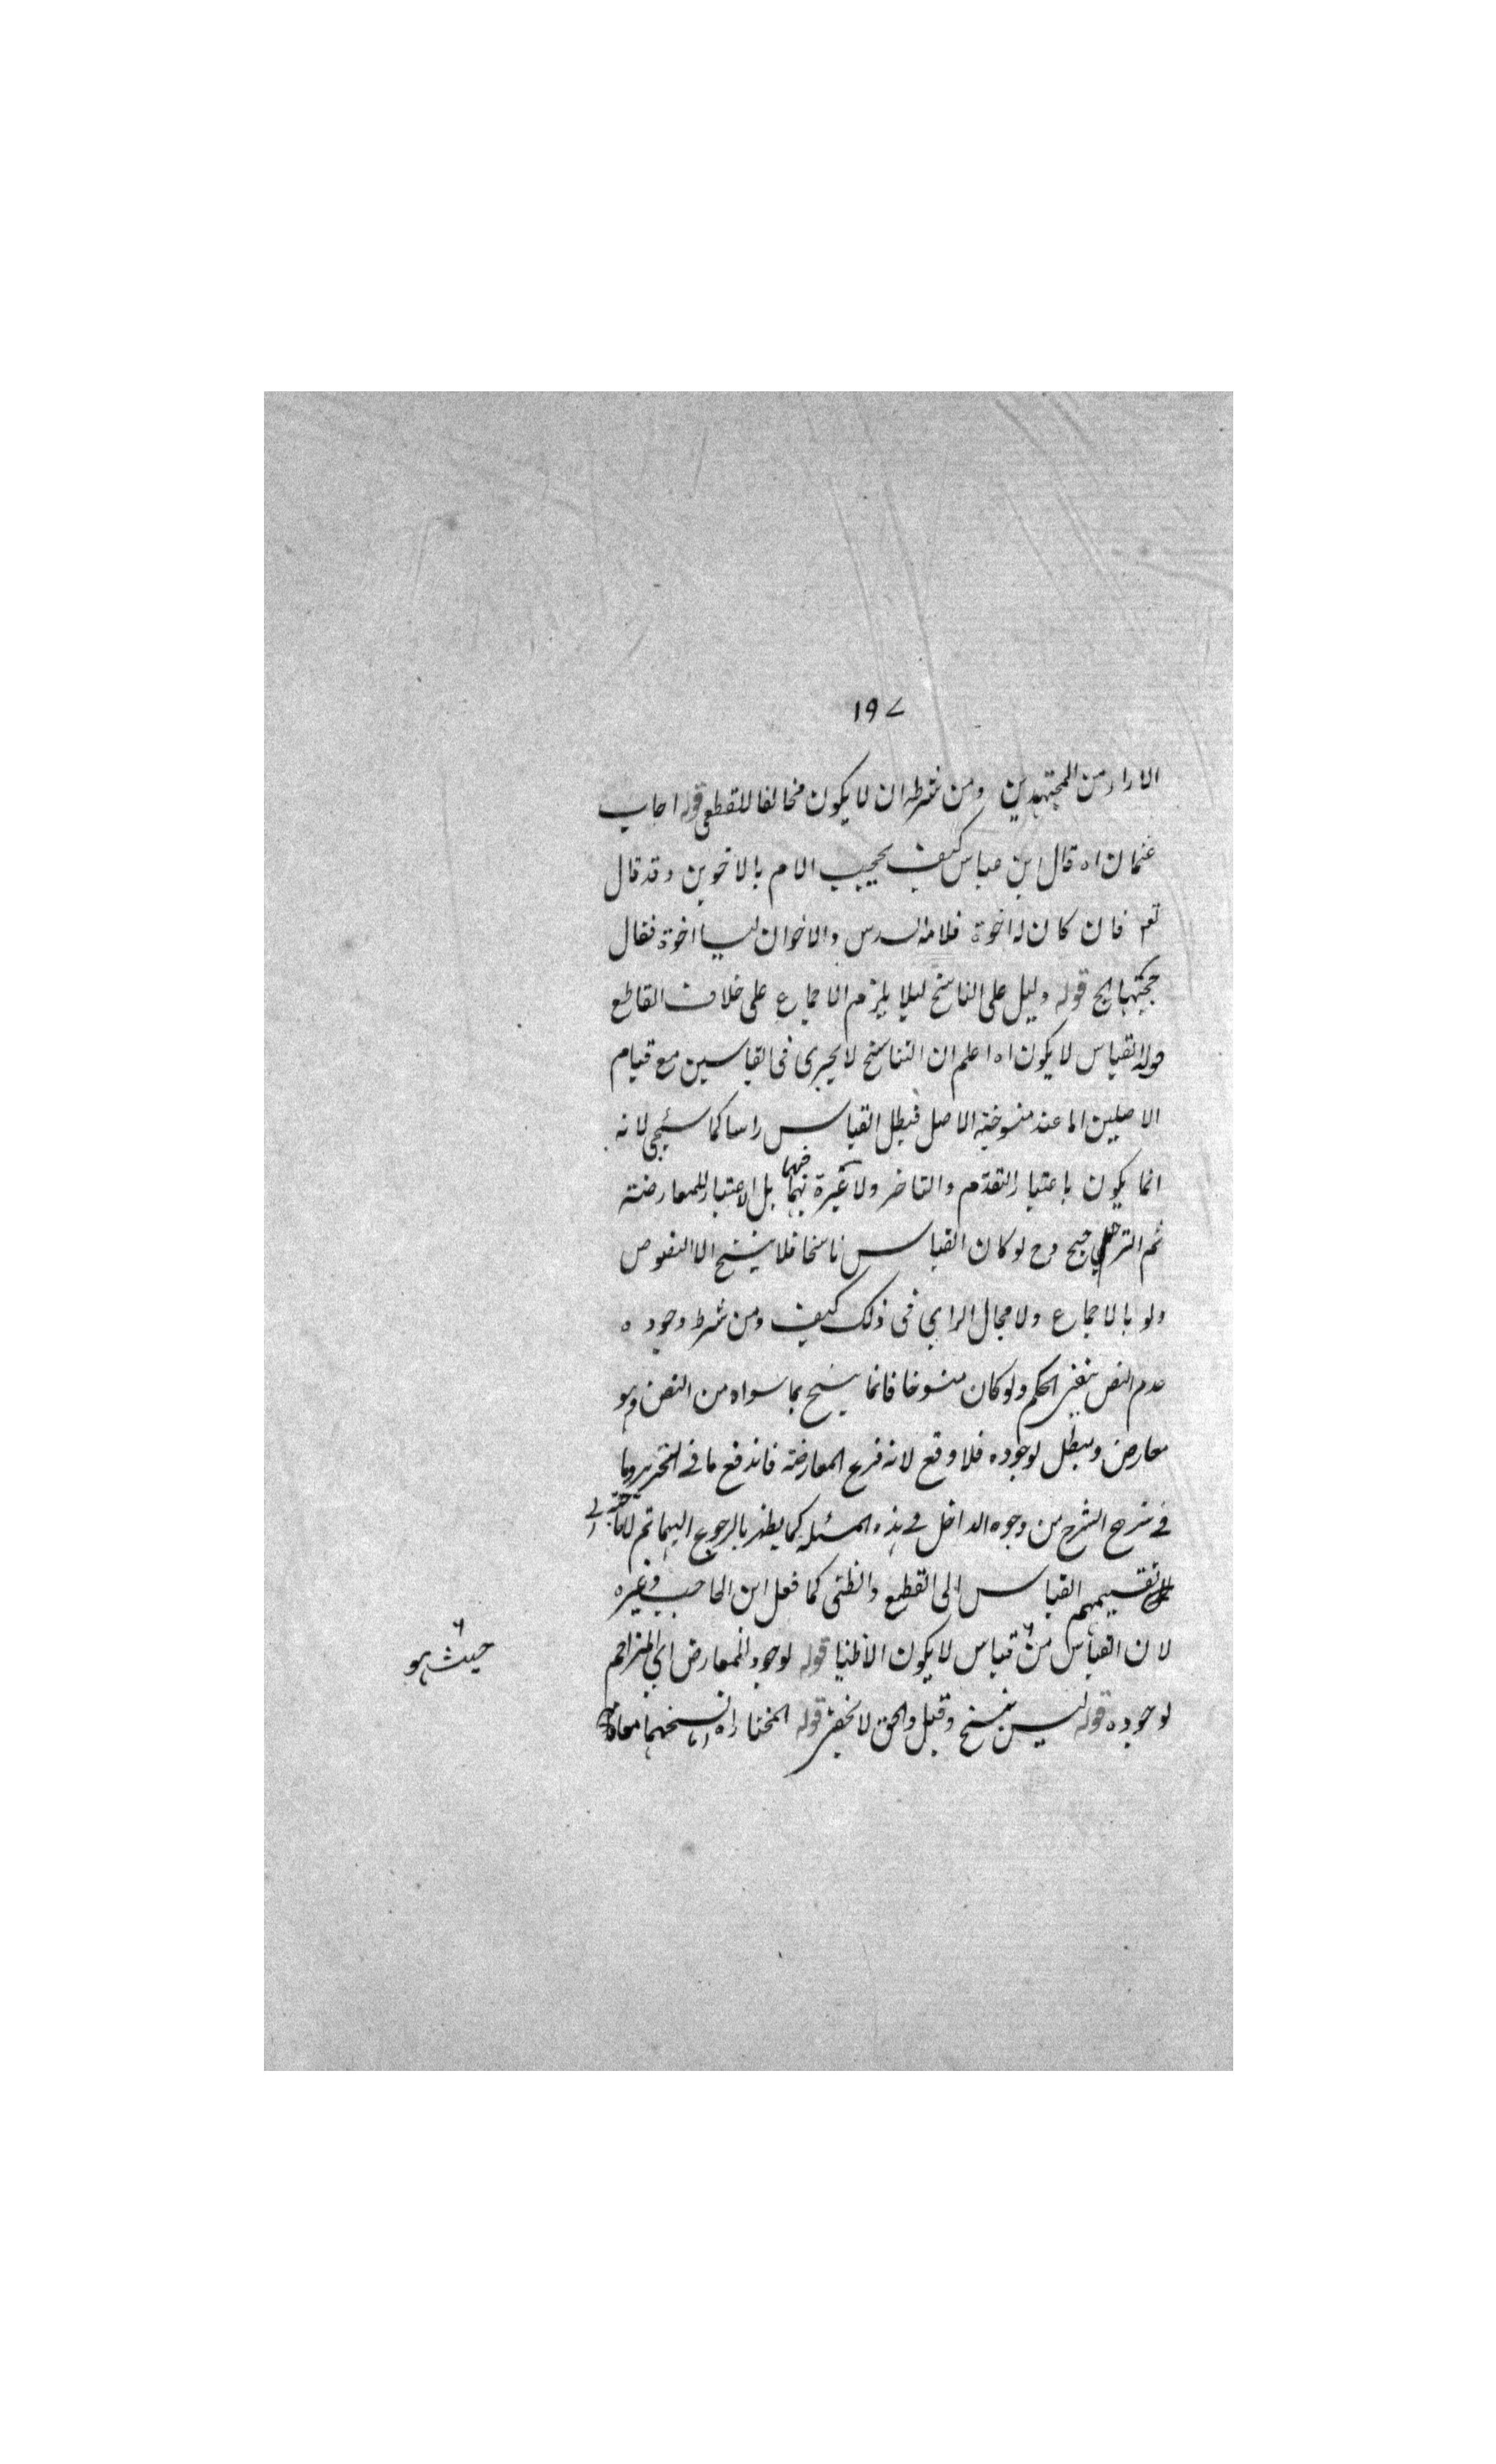 ١٩٧
الاراء من المجتهدين ومن شرطه ان لا يكون مخالفا للقطعى قوله اجاب
عثمان اه قال ابن عباس كيف يحجب الام بالاخوين وقد قال
تعم فان كان له اخوة فلامه السدس والاخوان ليسا اخوة فقال
حجبتها الخ قوله دليل على الناسخ ليلا يلزم الاجماع على خلاف القاطع
قوله القياس لا يكون اه اعلم ان التناسخ لا يجرى فى القياسين مع قيام
الاصلين اما عند منسوخية الاصل فبطل القياس راسا كما سيجى لانه
انما يكون باعتبار التقدم والتاخر ولا عبرة بهما فيهما بل الاعتبار للمعارضة
ثم الترجيح وح لو كان القياس ناسخا فلا ينسخ الا النصوص
ولو بالاجماع ولا مجال الراي فى ذلك كيف ومن شرط وجوده
عدم النص بنفى الحكم ولو كان منسوخا فانما ينسخ بما سواه من النص وهو
معارض ومبطل لوجوده فلا وقع لانه فرع المعارضة فاندفع ما فى التحرير وما
فى شرح الشرح من وجوه الداخل فى هذه المسئله كما يظهر بالرجوع اليهما ثم لا حاجة الى
تقسيمهم القياس الى القطيع والظنى كما فعل ابن الحاجب وغيره
لان القياس من قياس لا يكون الا ظنيا قوله لوجود المعارض اي المزاحم
حيث هو
لوجوده قوله ليس بنسخ وقيل والحق لا يخفى قوله المختار اه نسخهما معا